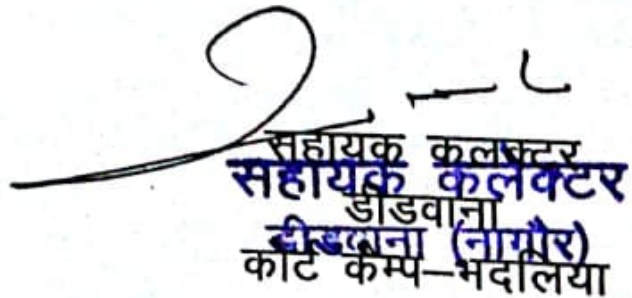 सहायक कलक्टर
सहायक कलेक्टर
डीडवाना
डीडवाना (नागौर)
कोर्ट केम्प–भदलिया